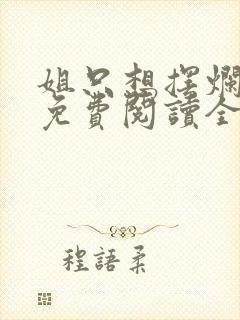 姐只想摆爛
免費閱讀全
程語柔